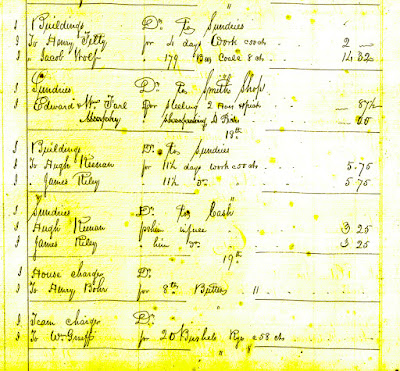 1 Buildings Dr To Sundries
1 To Henry Tilly for 4 days work 50 cts 2 —
1 " Jacob Wolf " 179 Bus Coal 8 cts 14 32
1 Sundries Dr To Smith Shop
1 Edward & Wm for Steeling 2 — 87½
Sharpening 60
19th
1 Buildings Dr To Sundries
1 To Hugh Keenan for 11½ days work 50 cts 5.75
1 " James Riley " 11½ Do " 5.75
1 Sundries Dr To Cash
1 Hugh Keenan p him 3 25
1 James Riley " him Do 3 25
19th
1 House charges Dr
1 To Henry Bohr for 8 lb Butter 11
1 Team charges Dr
1 To Wm Graff for 20 Bushels Rye @ 58 cts